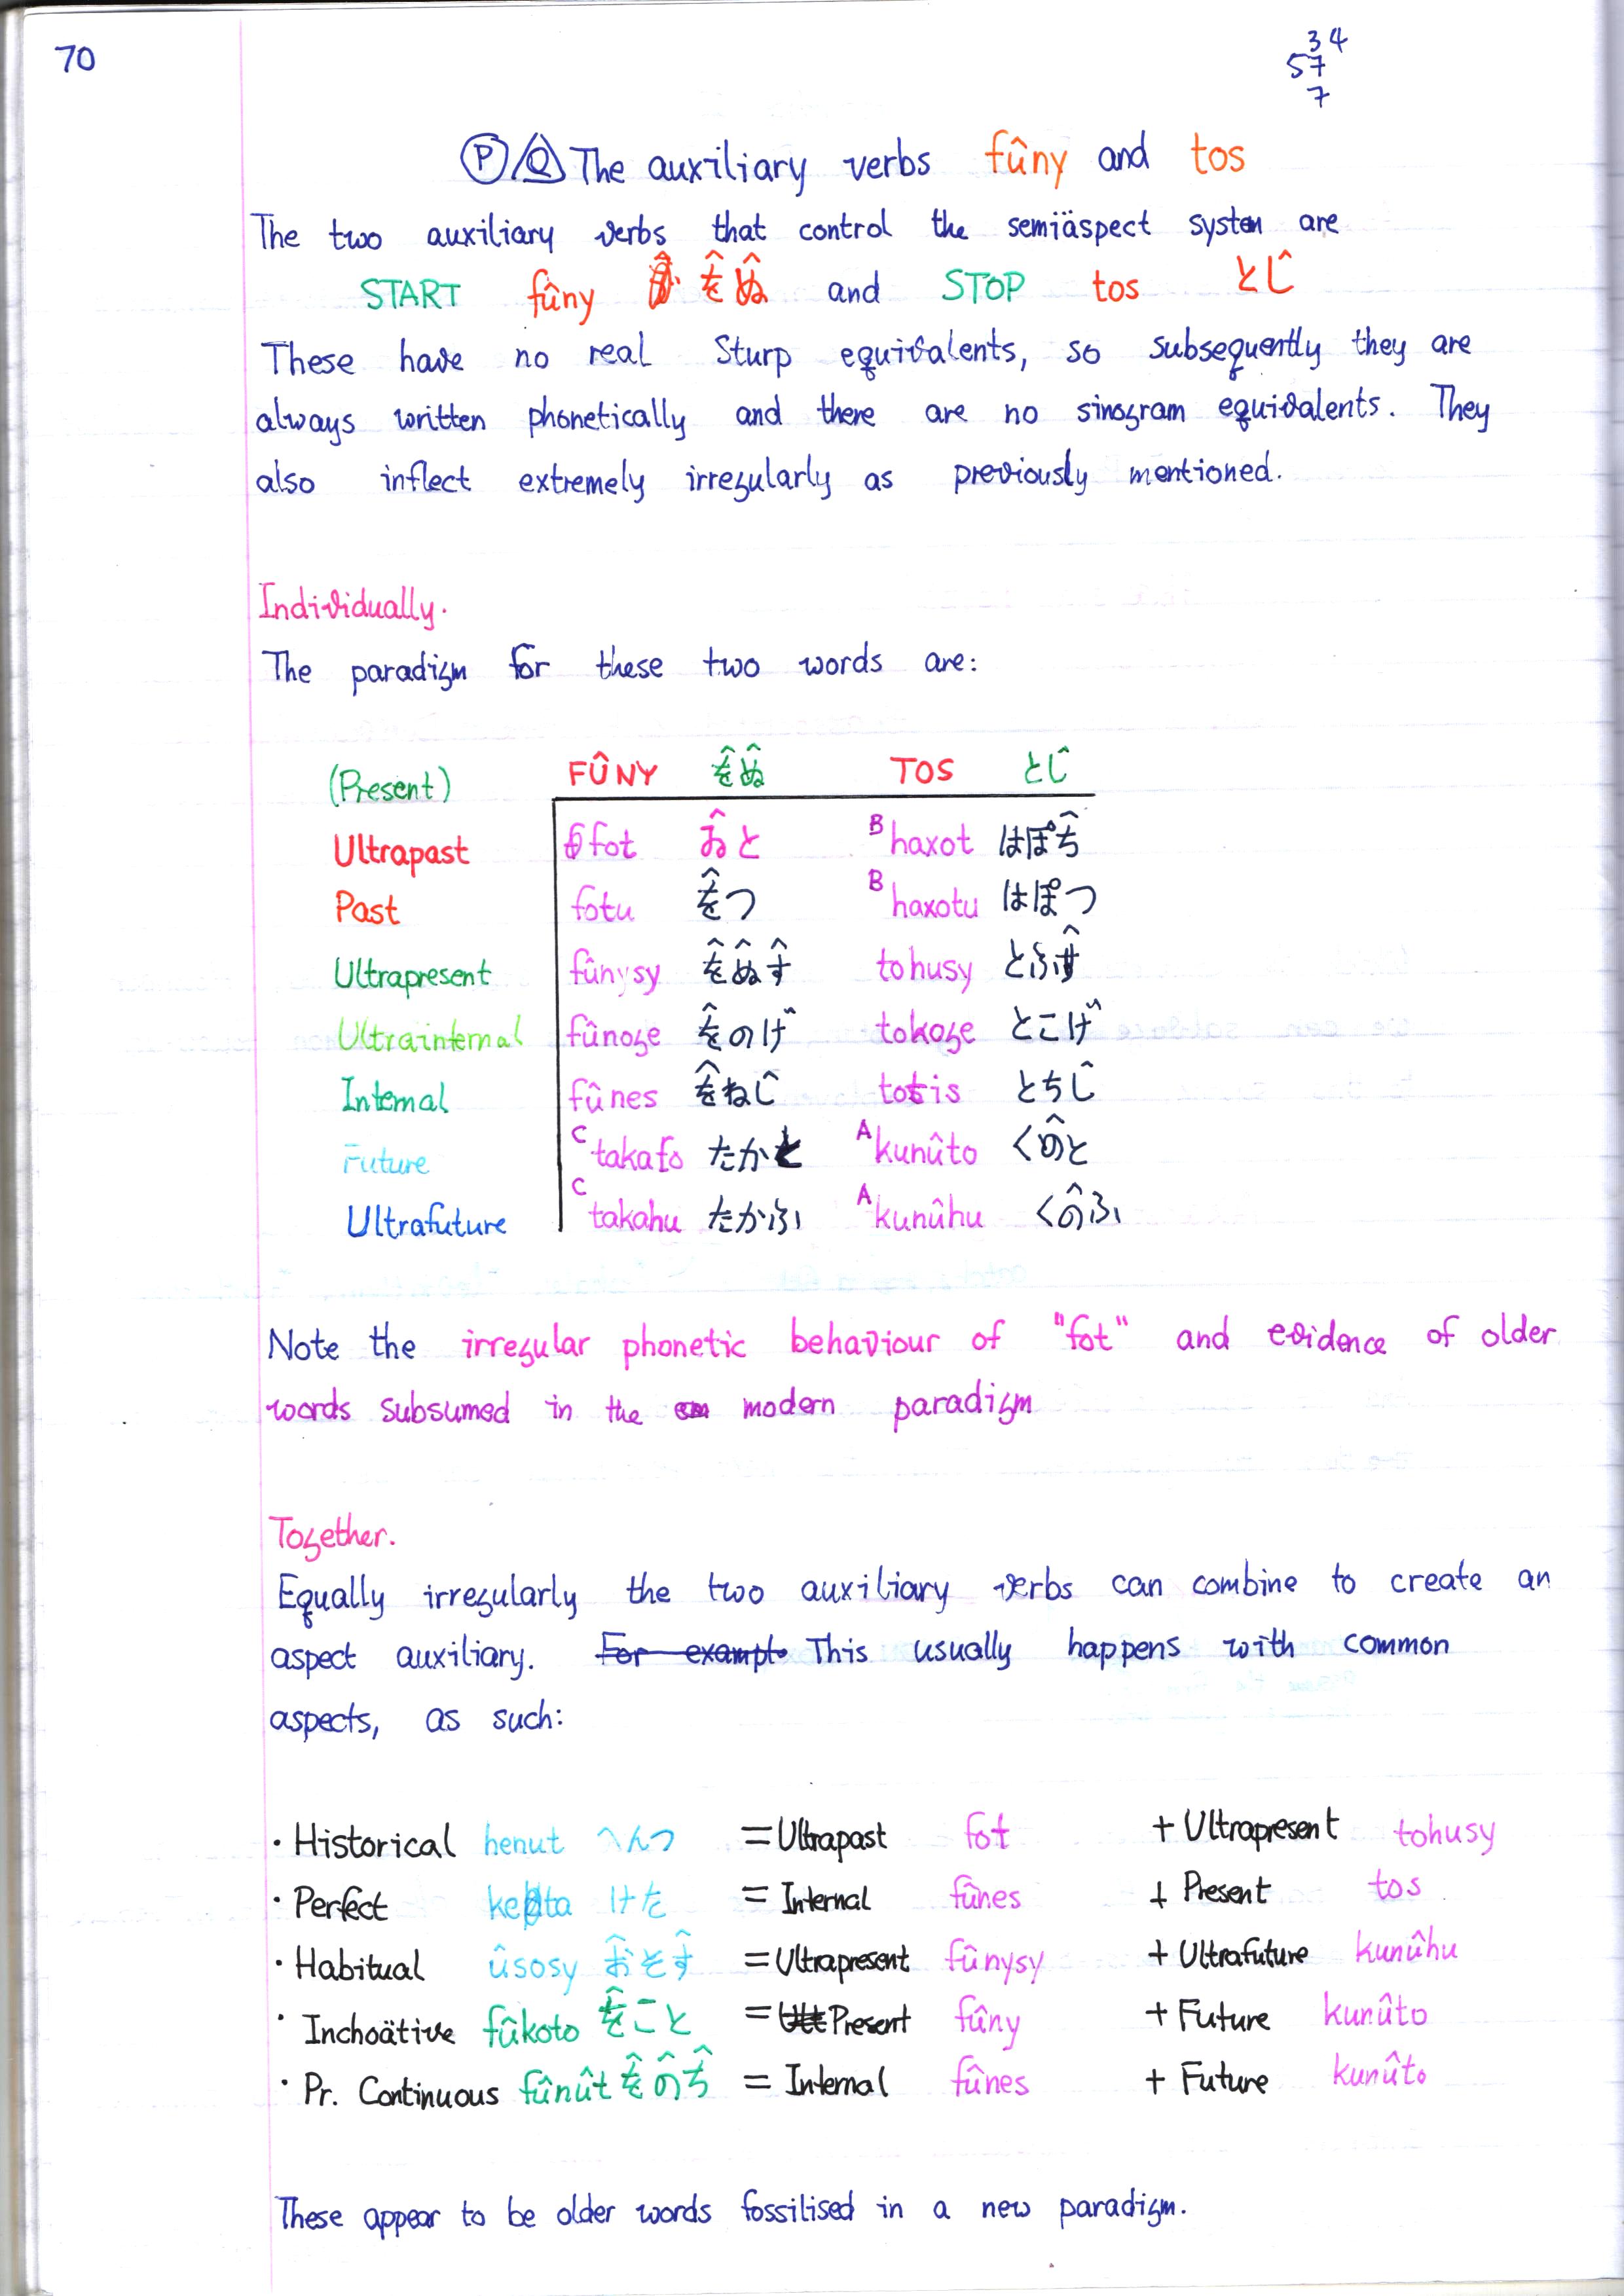 70
34
57
7
P / Q The auxiliary verbs fûny and tos
The two auxiliary verbs that control the semiäspect system are
START fûny を̂ぬ̂ and STOP tos とじ̂
These have no real Sturp equivalents, so subsequently they are
always written phonetically and there are no sinogram equivalents. They
also inflect extremely irregularly as previously mentioned.
Individually.
The paradigm for these two words are:
(Present) FÛNY を̂ぬ̂ TOS とじ̂
Ultrapast fot お̂と B haxot はぽち̂
Past fotu を̂つ B haxotu はぽつ
Ultrapresent fûnysy を̂ぬ̂す̂ tohusy とふす̂
Ultrainternal fûnoge を̂のげ tokoge とこげ
Internal fûnes を̂ねじ̂ totis とちじ̂
Future C takafo たかと A kunûto くの̂と
Ultrafuture C takahu たかふ A kunûhu くの̂ふ
Note the irregular phonetic behaviour of "fot" and evidence of older
words subsumed in the modern paradigm
Together.
Equally irregularly the two auxiliary verbs can combine to create an
aspect auxiliary. For example This usually happens with common
aspects, as such:
· Historical henut へんつ = Ultrapast fot + Ultrapresent tohusy
· Perfect keta けた = Internal fûnes + Present tos
· Habitual ûsosy お̂そす̂ = Ultrapresent fûnysy + Ultrafuture kunûhu
· Inchoätive fûkoto を̂こと = Present fûny + Future kunûto
· Pr. Continuous fûnût を̂の̂ち̂ = Internal fûnes + Future kunûto
These appear to be older words fossilised in a new paradigm.